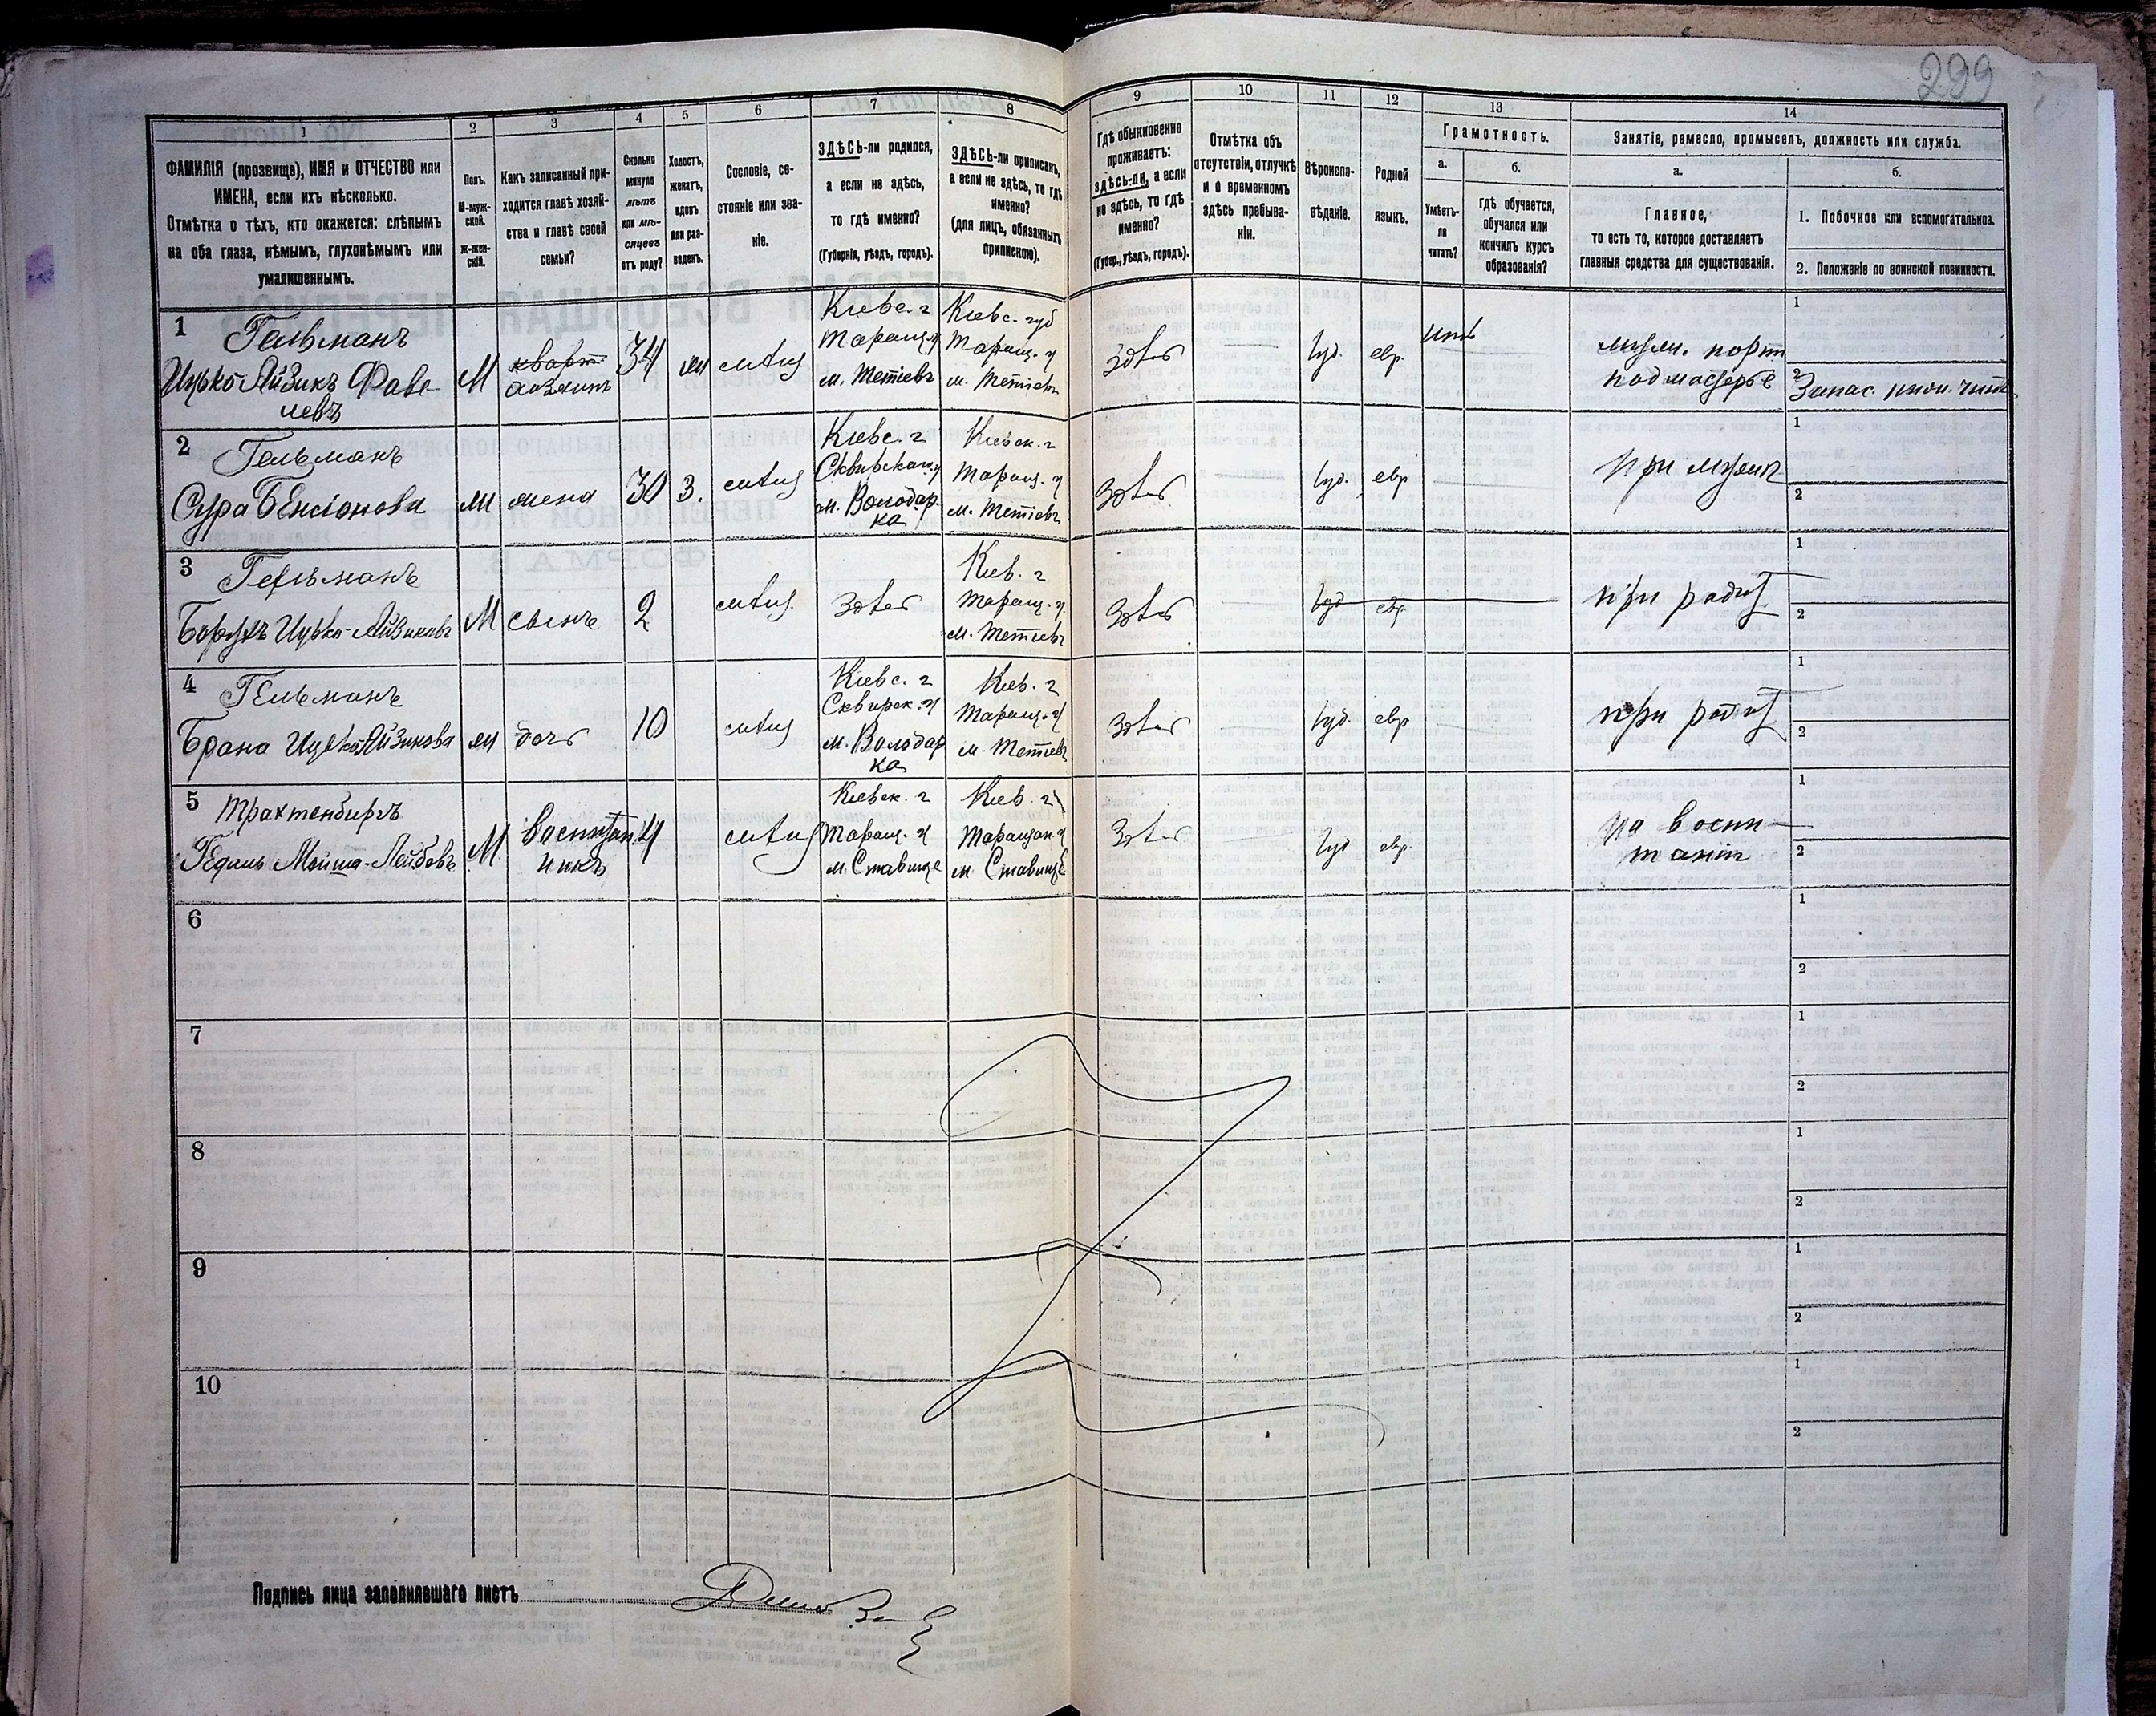 299
1
2
3
4
5
6
7
8
9
10
11
12
13
14
ФАМИЛІЯ (прозвище), ИМЯ и ОТЧЕСТВО или
ИМЕНА, если ихъ нѣсколько.
Отмѣтка о тѣхъ, кто окажется: слѣпымъ
на оба глаза, нѣмымъ, глухонѣмымъ или
умалишеннымъ.
Полъ.
М-муж-
ской.
Ж-жен-
скій.
Какъ записанный при-
ходится главѣ хозяй-
ства и главѣ своей
семьи?
Сколько
минуло
лѣтъ
или мѣ-
сяцевъ
отъ роду?
Холостъ,
женатъ,
вдовъ
или раз-
веденъ.
Сословіе, со-
стояніе или зва-
ніе.
ЗДѢСЬ-ли родился,
а если не здѣсь,
то гдѣ именно?
(Губернія, уѣздъ, городъ).
ЗДѢСЬ-ли приписанъ,
а если не здѣсь, то гдѣ
именно?
(для лицъ, обязанныхъ
припискою).
Гдѣ обыкновенно
проживаетъ:
здѣсь-ли, а если
не здѣсь, то гдѣ
именно?
(Губер., уѣздъ, городъ).
Отмѣтка объ
отсутствіи, отлучкѣ
и о временномъ
здѣсь пребыва-
ніи.
Вѣроиспо-
вѣданіе.
Родной
языкъ.
Грамотность.
а.
б.
Умѣетъ-
ли
читать?
гдѣ обучается,
обучался или
кончилъ курсъ
образованія?
Занятіе, ремесло, промыселъ, должность или служба.
а.
б.
Главное,
то есть то, которое доставляетъ
главныя средства для существованія.
1. Побочное или вспомогательное.
2. Положеніе по воинской повинности.
1
Гельманъ
Ицько-Айзикъ
М
кварт
хозяинъ
34
ж
Кіевс. г
Таращ. у
м. Тетіевъ
Кіевс. губ
Таращ. у
м. Тетіевъ
здѣсь
іуд.
евр.
подмастерье
1
2
2
Гельманъ
Сура Бенсіонова
ж
жена
30
З.
Кіевс. г
Сквирскаго у
м. Володар
ка
Кіевск. г
Таращ. у
м. Тетіевъ
здѣсь
іуд.
евр
при мужѣ
1
2
3
Гельманъ
Борухъ Ицько-Айзиковъ
М
сынъ
2
здѣсь
Кіев. г
Таращ. у
м. Тетіевъ
здѣсь
іуд
евр.
при родит
1
2
4
Гельманъ
Брана Ицько-Айзикова
ж
дочь
10
Кіевс. г
Сквирск. у
м. Володар
ка
Кіев. г
Таращ. у
м. Тетіевъ
здѣсь
іуд.
евр
при родит
1
2
5
Трахтенбергъ
Гедаль Мойша-Лейбовъ
М.
воспитан
никъ
4
Кіевск. г
Таращ. у
м. Ставище
Кіев. г
Таращан. у
м. Ставище
здѣсь
іуд
евр.
на воспи
таніи
1
2
6
1
2
7
1
2
8
1
2
9
1
2
10
1
2
Подпись лица заполнявшаго листъ